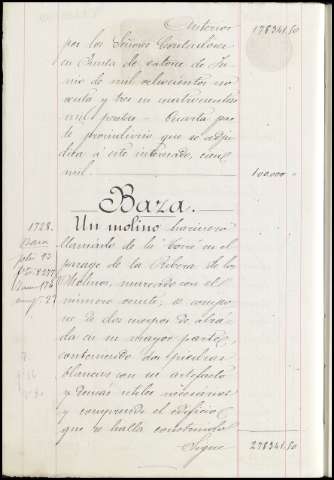 Anterior 178341.50
por los Señores Contadores
en Junta de catorce de Ju-
nio de mil ochocientos no
venta y tres en cuatrocientas
mil pesetas - Cuarta par
te proindiviso que se adju
dica á este interesado, cien
mil. 100.000
Baza.
1728. Un molino harinero
Baza llamado de la Torre en el
parage de la Ribera de los
Molinos, marcado con el
número veinte, se compo
ne de dos cuerpos de alza
da en su mayor parte,
conteniendo dos piedras
blancas con su artefacto
y demás útiles necesarios
y comprende el edificio
que se halla construido
Sigue 278341.50